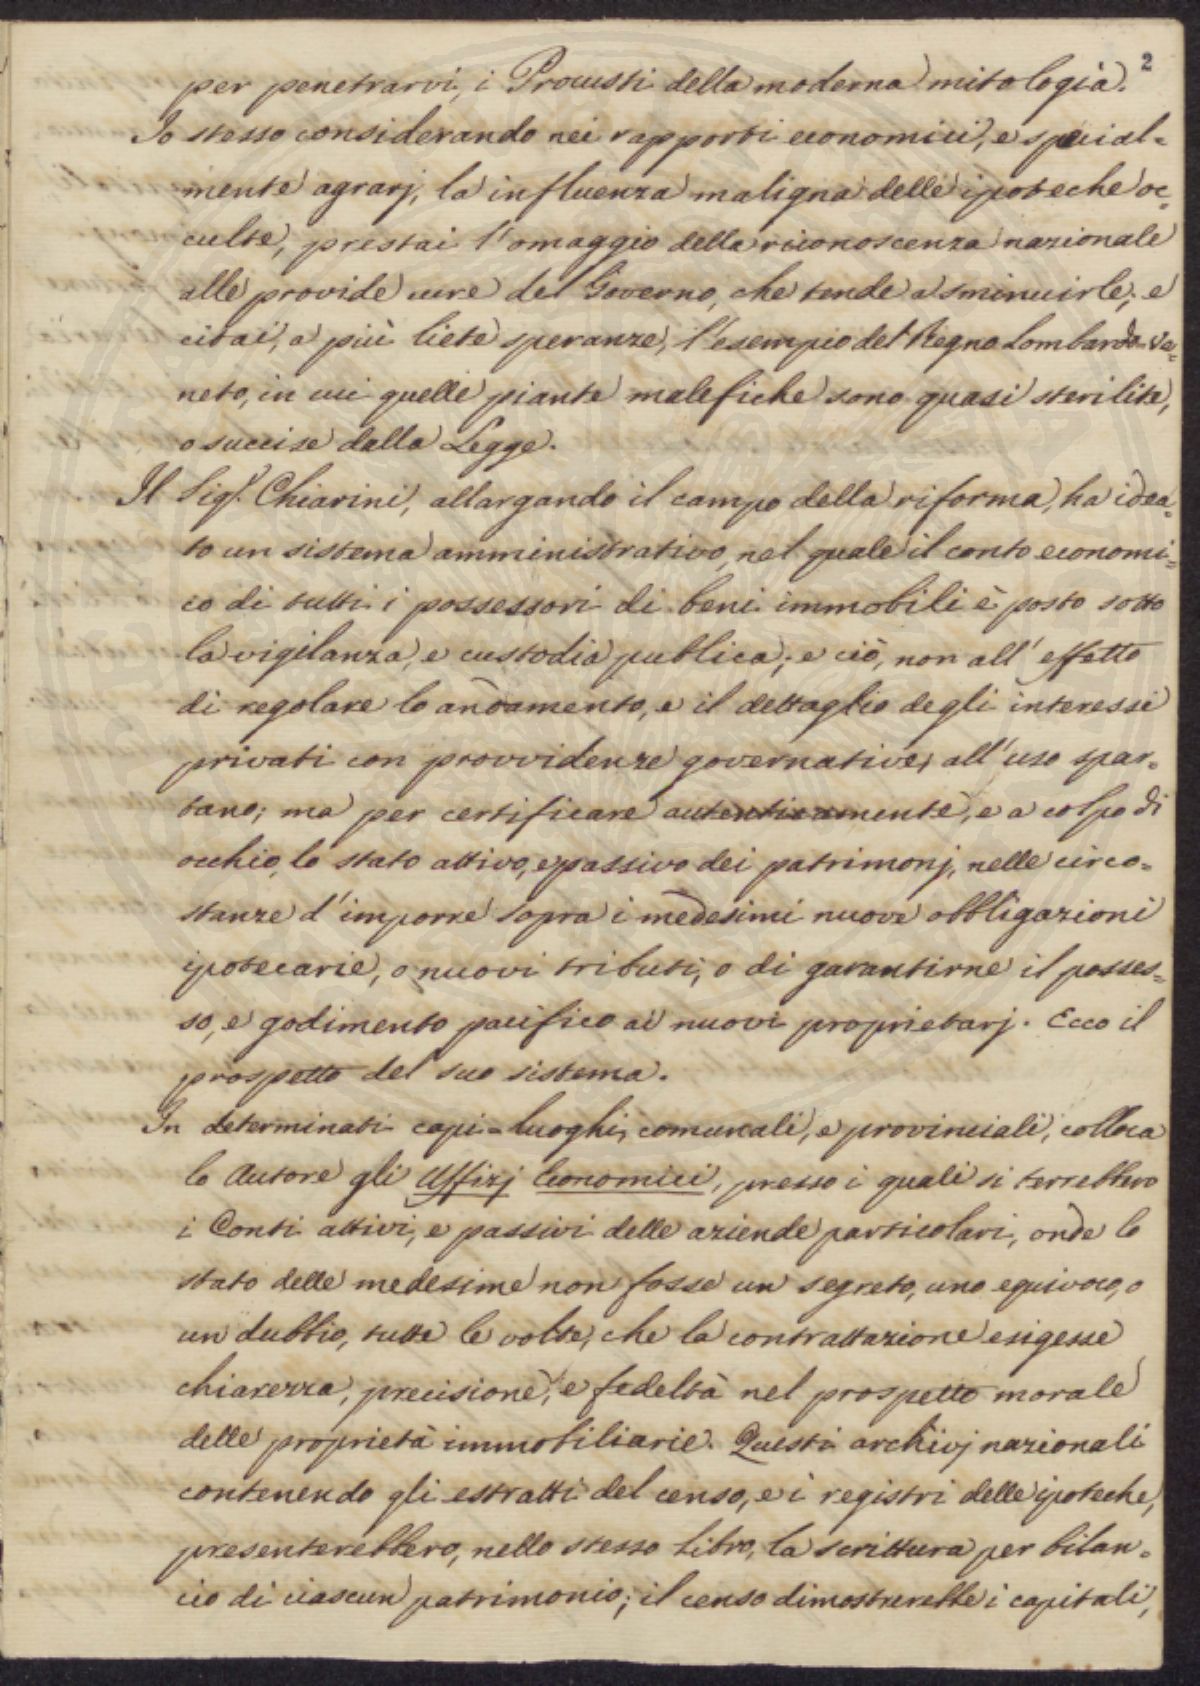 2
per penetrarvi, i Procusti della moderna mitologia.
Io stesso considerando nei rapporti economici, e special=
mente agrarj, la influenza maligna delle ipoteche oc=
culte, prestai l'omaggio della riconoscenza nazionale
alle provide cure del Governo, che tende a sminuirle; e
citai, a più liete speranze, l'esempio del Regno Lombardo-Ve=
neto, in cui quelle piante malefiche sono quasi sterilite,
o succise dalla Legge.
Il Sigr. Chiarini, allargando il campo della riforma, ha idea=
to un sistema amministrativo, nel quale il conto economi=
co di tutti i possessori di beni immobili è posto sotto
la vigilanza, e custodia publica; e ciò, non all'effetto
di regolare lo andamento, e il dettaglio degli interessi
privati con provvidenze governative, all'uso spar=
tano; ma per certificare autenticamente, e a colpo di
occhio, lo stato attivo, e passivo dei patrimonj, nelle circo=
stanze d'imporre sopra i medesimi nuove obbligazioni
ipotecarie, o nuovi tributi, o di garantirne il posses=
so, e godimento pacifico ai nuovi proprietarj. Ecco il
prospetto del suo sistema.
In determinati capi=luoghi, comunali, e provinciali, colloca
lo Autore gli Uffizj Economici, presso i quali si terrebbero
i Conti attivi, e passivi delle aziende particolari, onde lo
stato delle medesime non fosse un segreto, uno equivoco, o
un dubbio, tutte le volte, che la contrattazione esigesse
chiarezza, precisione, e fedeltà nel prospetto morale
delle proprietà immobiliarie. Questi archivj nazionali
contenendo gli estratti del censo, e i registri delle ipoteche,
presenterebbero, nello stesso Libro, la scrittura per bilan=
cio di ciascun patrimonio; il censo dimostrerebbe i capitali,